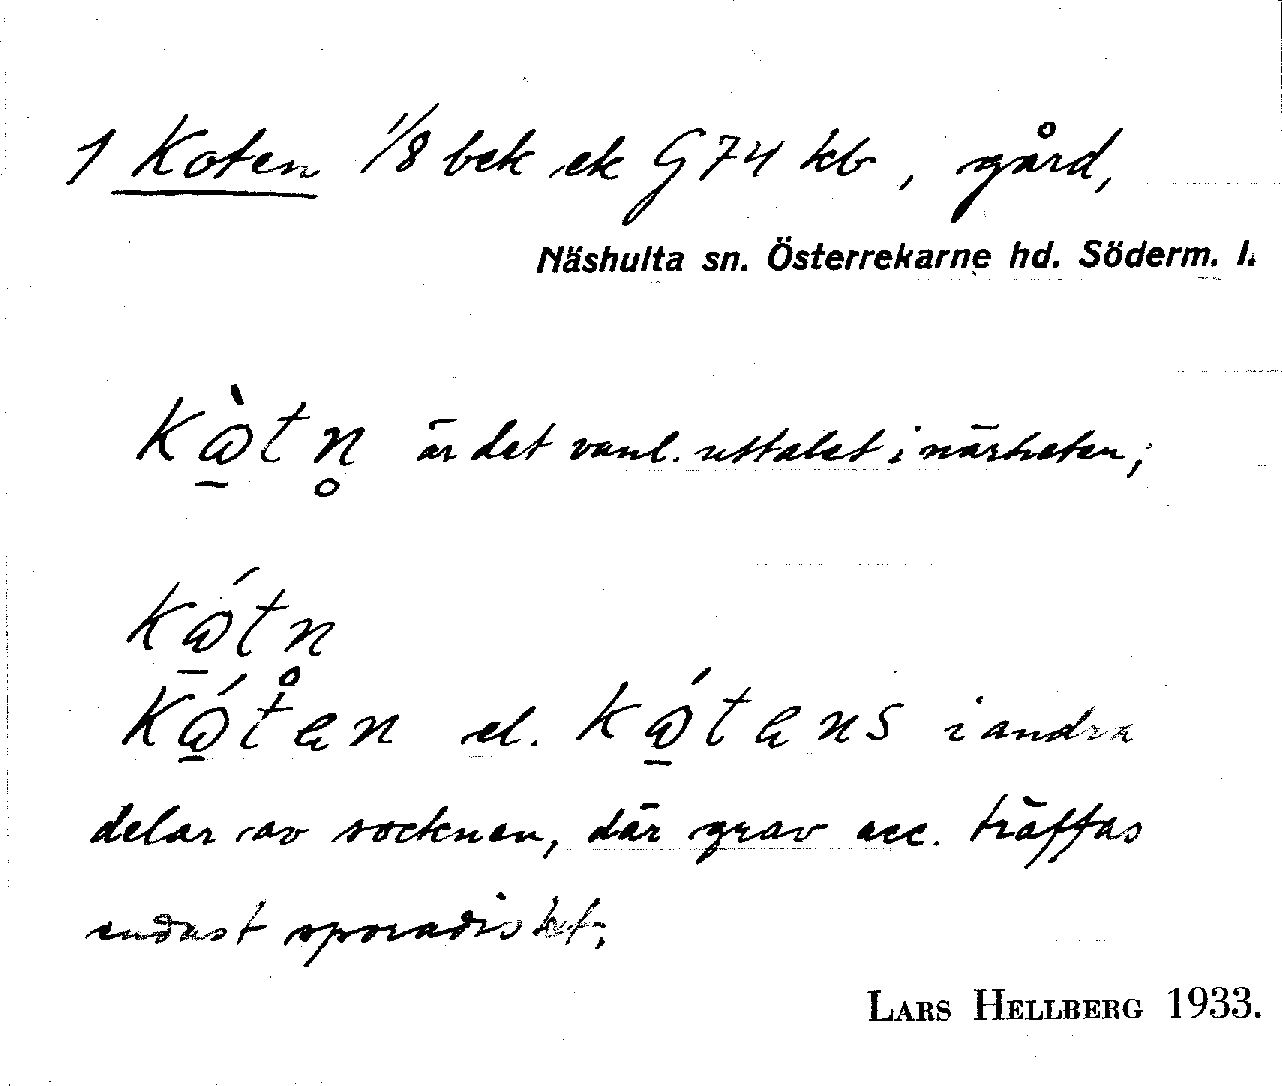 1 Koten 1/8 bek ek G74 kb, gård,
Näshulta sn. Österrekarne hd. Söderm. l.
kàtn̥ är det vanl. uttalet i närheten;
kátn̥
kátan el. kátans i andra
delar av socknen, där grav acc. träffas
endast sporadiskt.
LARS HELLBERG 1933.